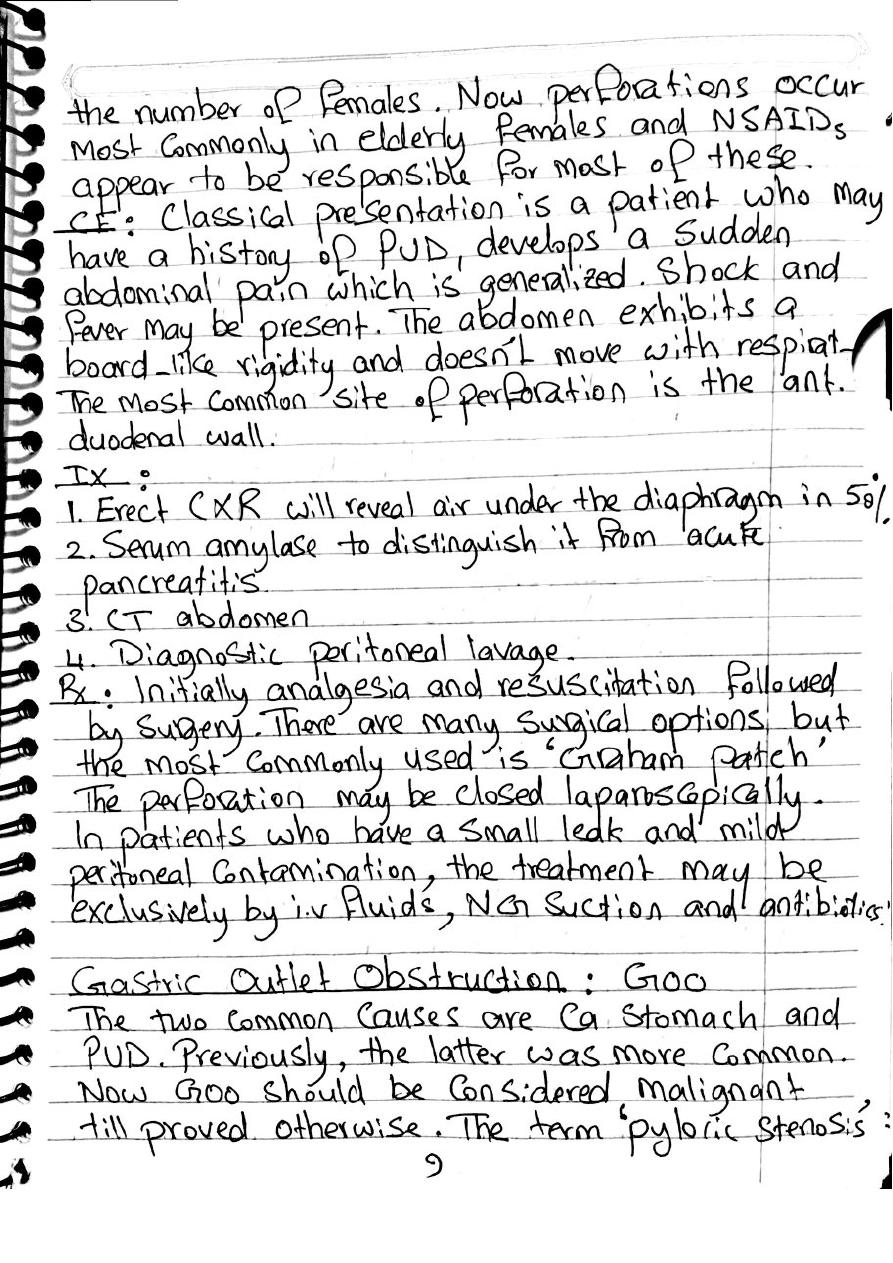 the number of females. Now perforations occur
most commonly in elderly females and NSAIDs
appear to be responsible for most of these.
CF: Classical presentation is a patient who may
have a history of PUD, develops a sudden
abdominal pain which is generalized. Shock and
fever may be present. The abdomen exhibits a
board-like rigidity and doesn't move with respirat-
The most common site of perforation is the ant.
duodenal wall.
IX:
1. Erect CXR will reveal air under the diaphragm in 50%
2. Serum amylase to distinguish it from acute
pancreatitis.
3. CT abdomen
4. Diagnostic peritoneal lavage.
Rx: Initially analgesia and resuscitation followed
by surgery. There are many surgical options but
the most commonly used is 'Graham patch'
The perforation may be closed laparoscopically.
In patients who have a small leak and mild
peritoneal contamination, the treatment may be
exclusively by i.v fluids, NG suction and antibiotics.
Gastric Outlet Obstruction: GOO
The two common causes are Ca stomach and
PUD. Previously, the latter was more common.
Now GOO should be considered malignant
till proved otherwise. The term 'pyloric stenosis'
9